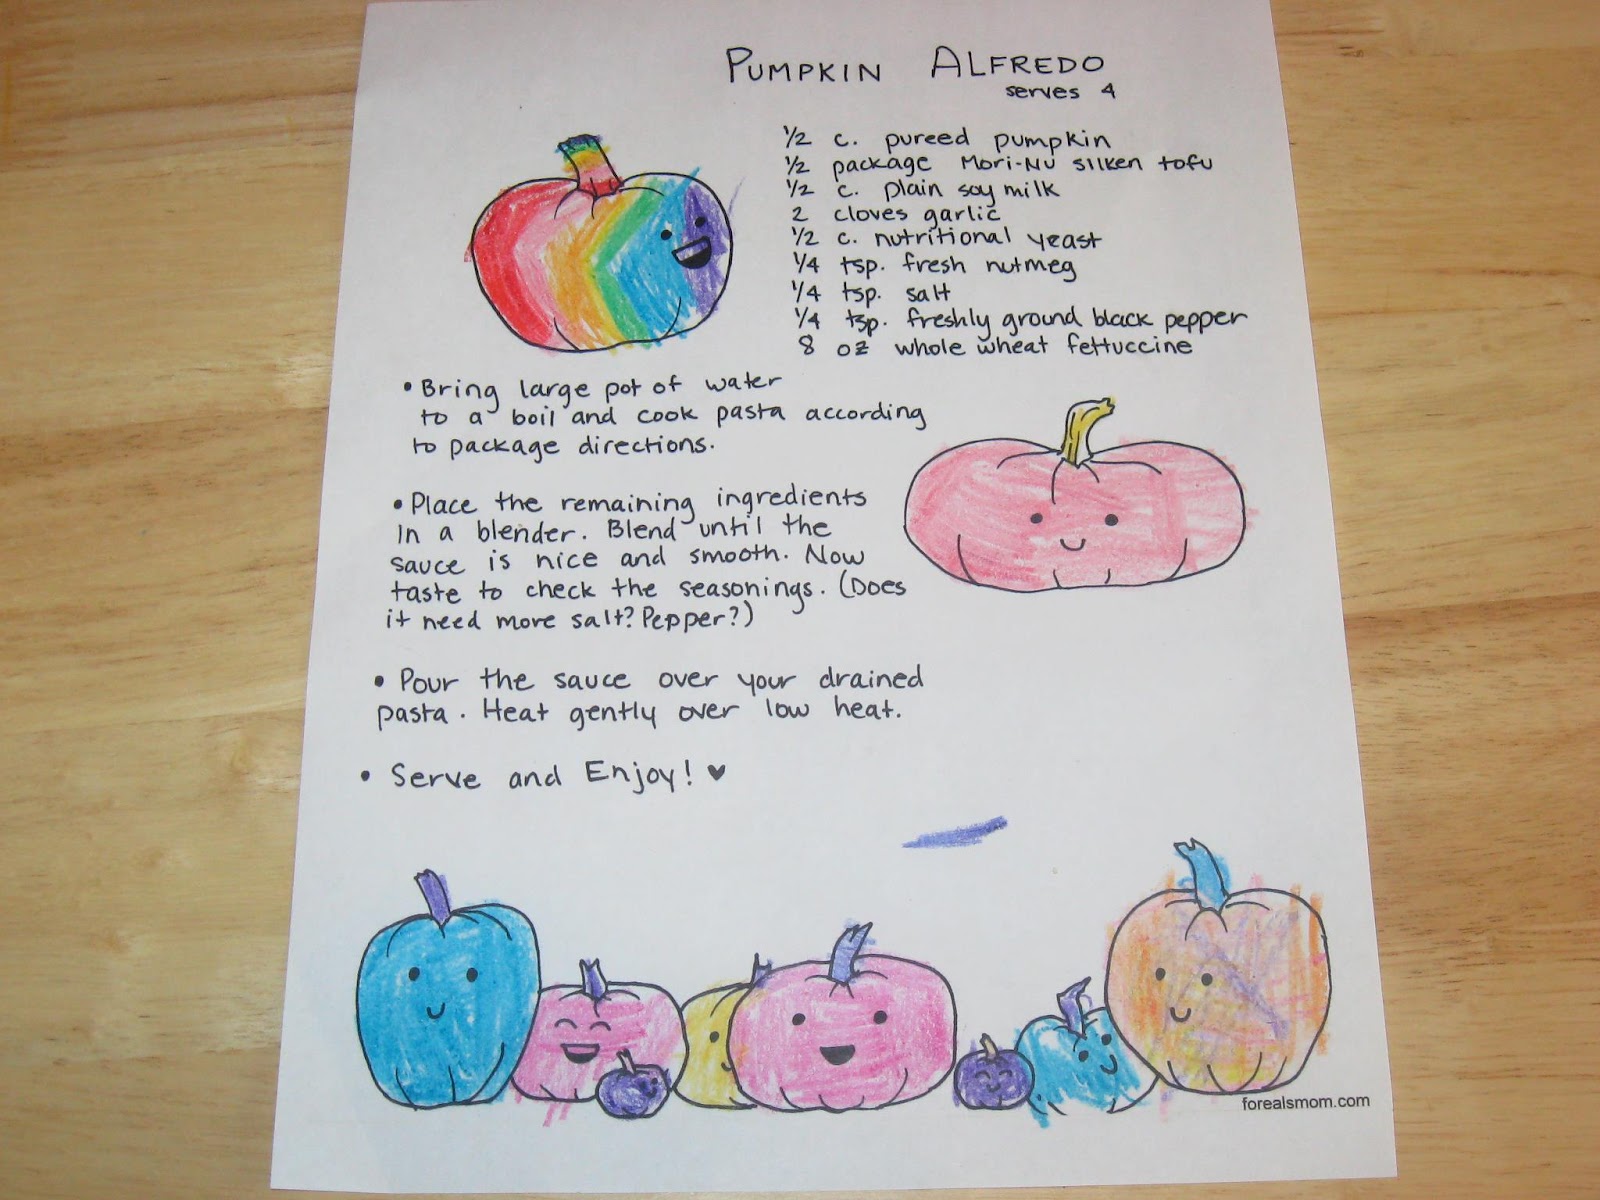 PUMPKIN ALFREDO
serves 4
1/2 c. pureed pumpkin
1/2 package Mori-Nu silken tofu
1/2 c. plain soy milk
2 cloves garlic
1/2 c. nutritional yeast
1/4 tsp. fresh nutmeg
1/4 tsp. salt
1/4 tsp. freshly ground black pepper
8 oz whole wheat fettuccine
• Bring large pot of water
to a boil and cook pasta according
to package directions.
• Place the remaining ingredients
in a blender. Blend until the
sauce is nice and smooth. Now
taste to check the seasonings. (Does
it need more salt? Pepper?)
• Pour the sauce over your drained
pasta. Heat gently over low heat.
• Serve and Enjoy! ♥
forealsmom.com